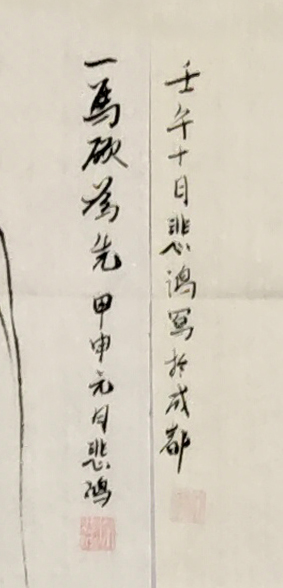 壬午十月悲鴻寫於成都
一馬砍為先甲申元月悲鴻